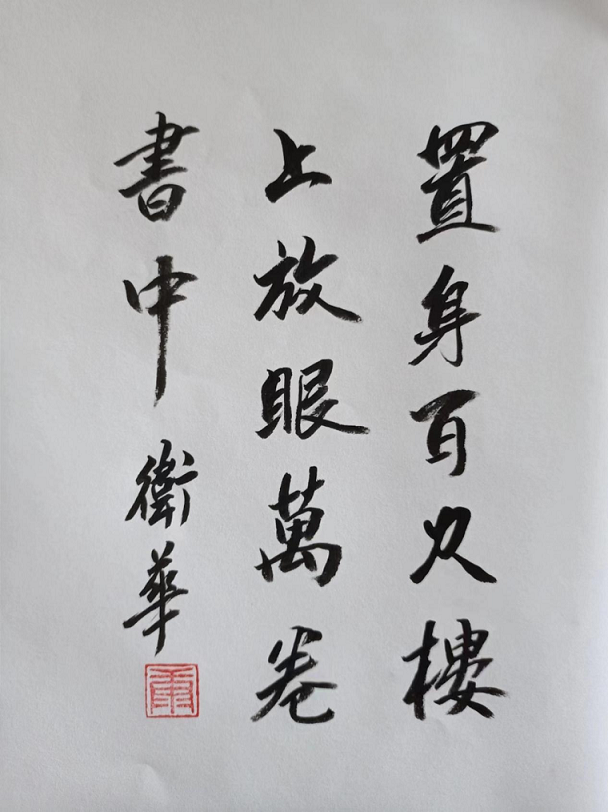 置身百尺樓
上放眼萬卷
書中 衛華